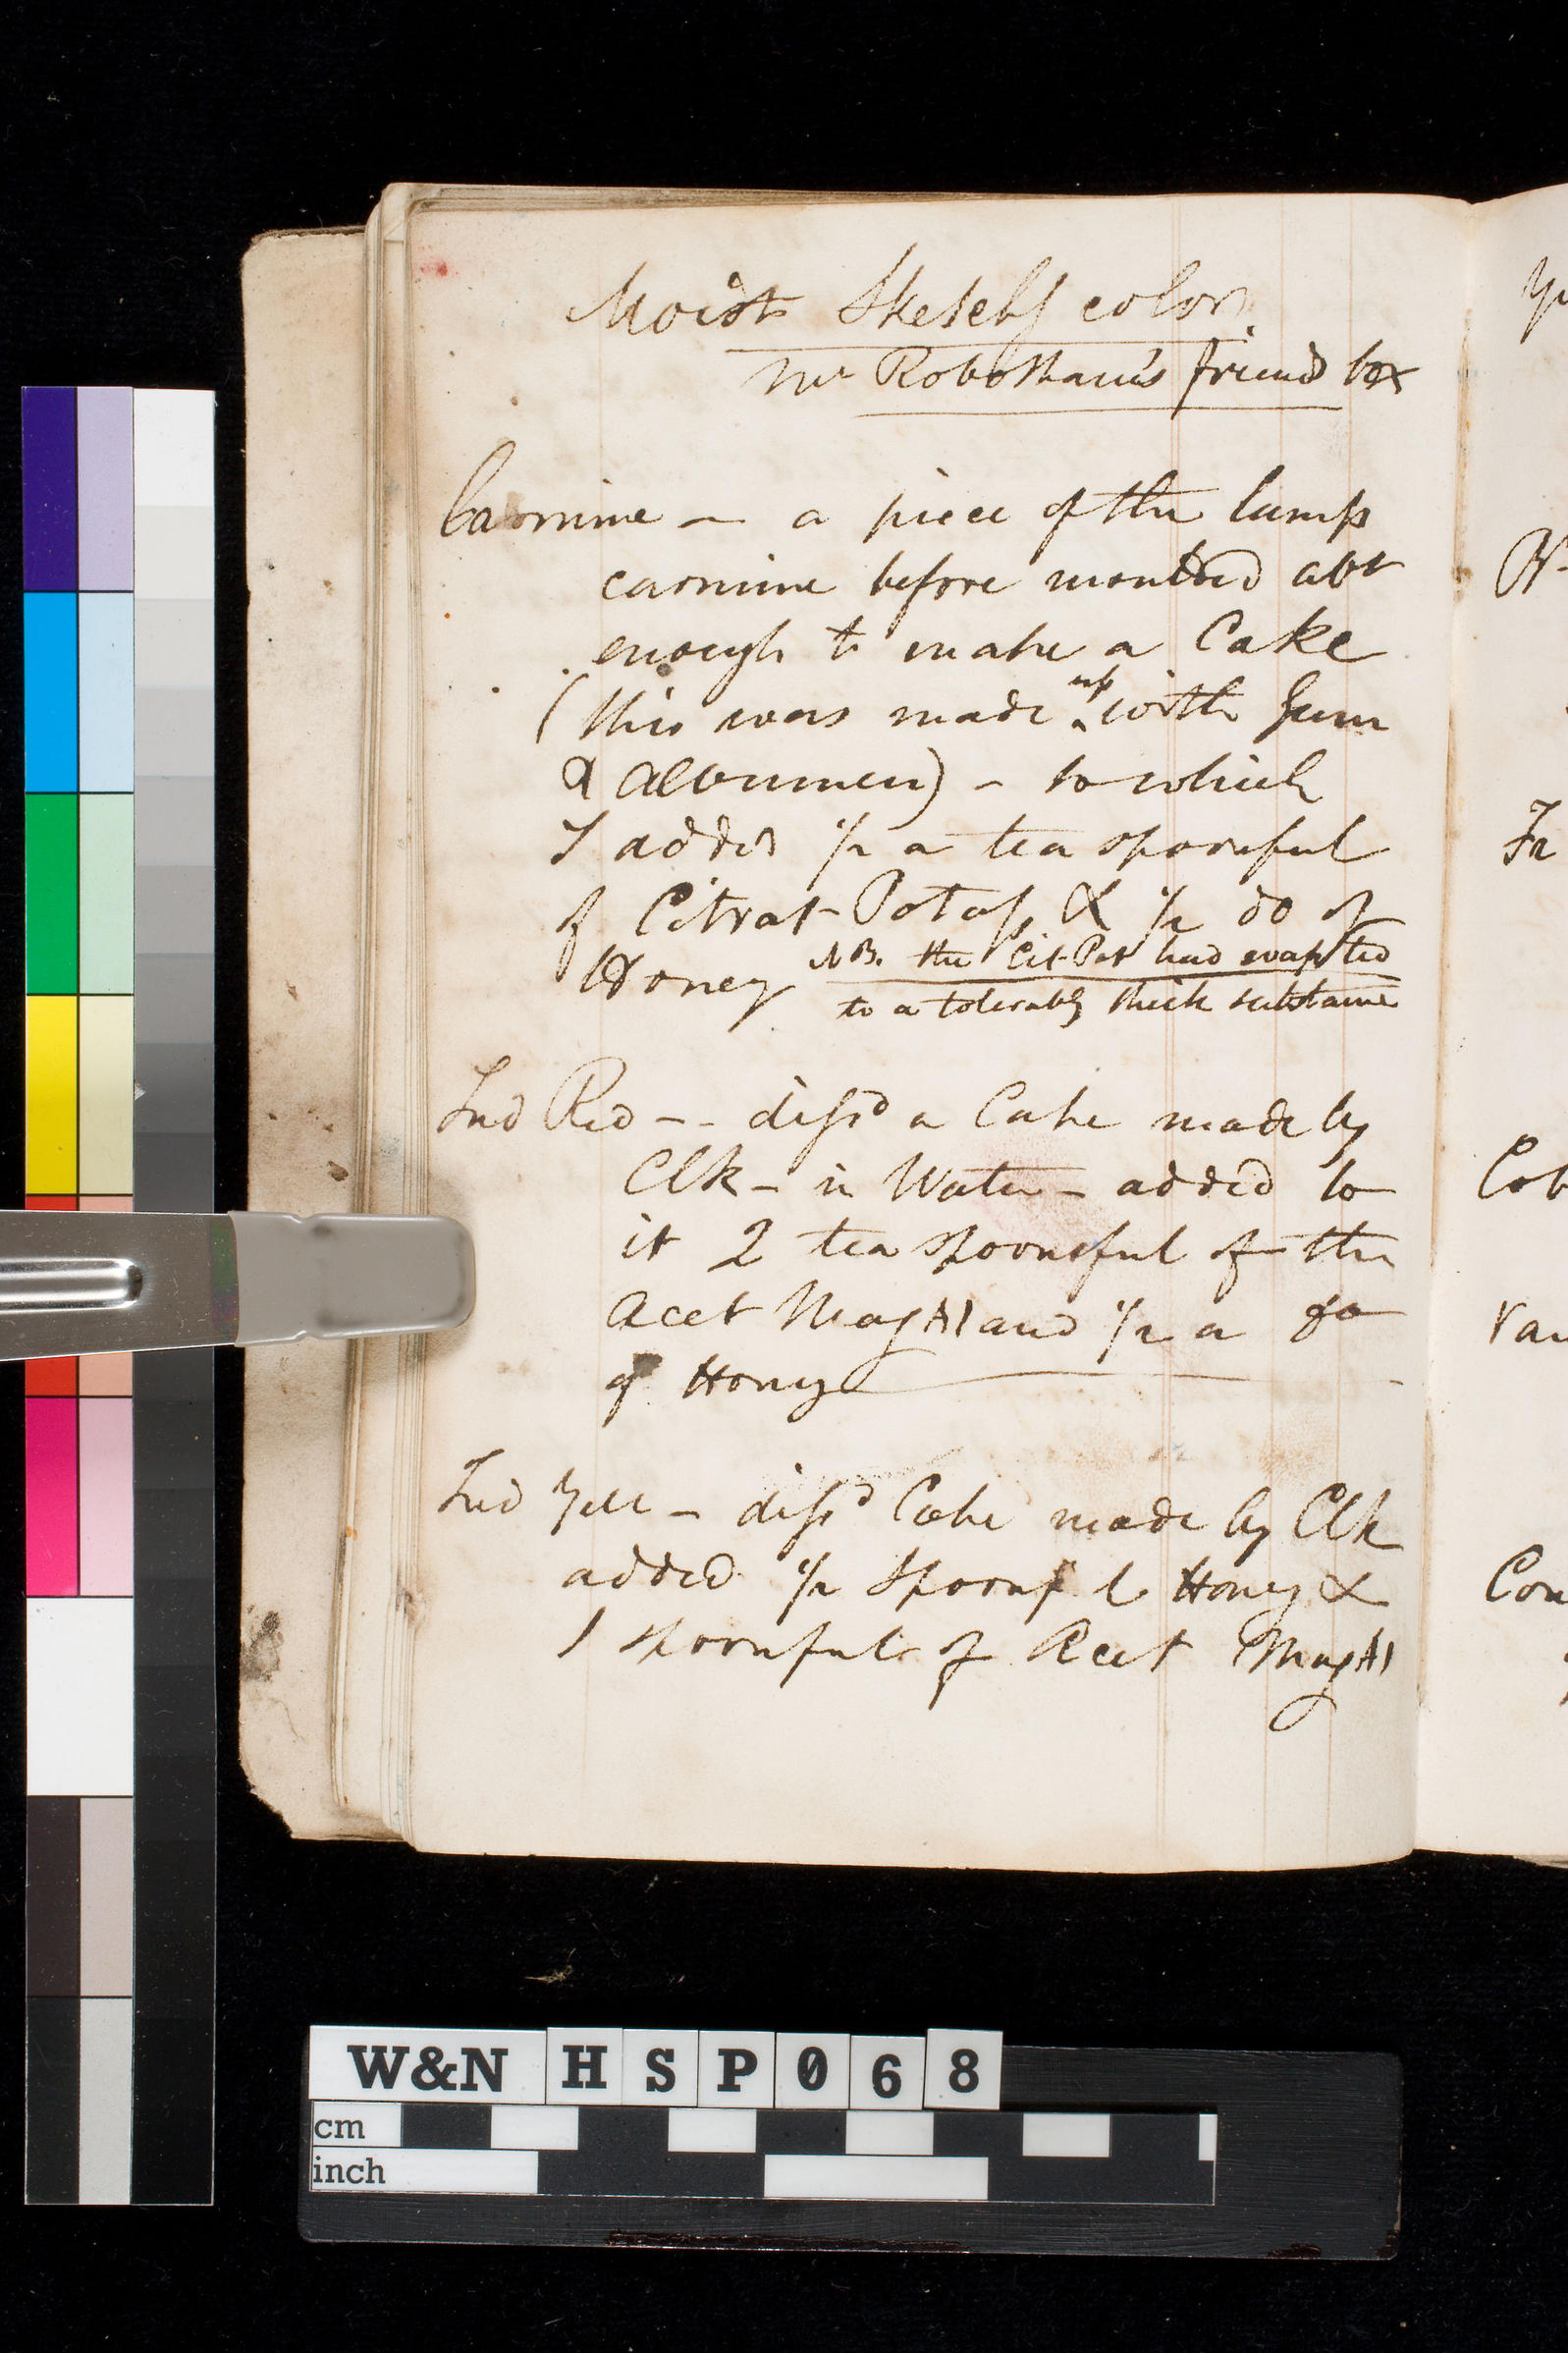 Moist Sketch colors
Mr Robotham's friend box
Carmine – a piece of the lump
carmine before moulded abt
enough to make a Cake
(this was made up with Gum
& Albumen) – to which
I added 1/2 a tea spoonful
of Citrat Potass & 1/2 do of
Honey NB. the Cit-Pot had evapted
to a tolerably thick substance
Ind Red – – dissd a Cake made by
Clk – in Water – added to
it 2 tea spoonsful of the
Acet Mag A1 and 1/2 a do
of Honey
Ind Yell – dissd Cake made by Clk
added 1/2 spoonful Honey &
1 spoonful of Acet Mag A1
Fr
Cob
Van
Con
W&N HSP068
cm
inch